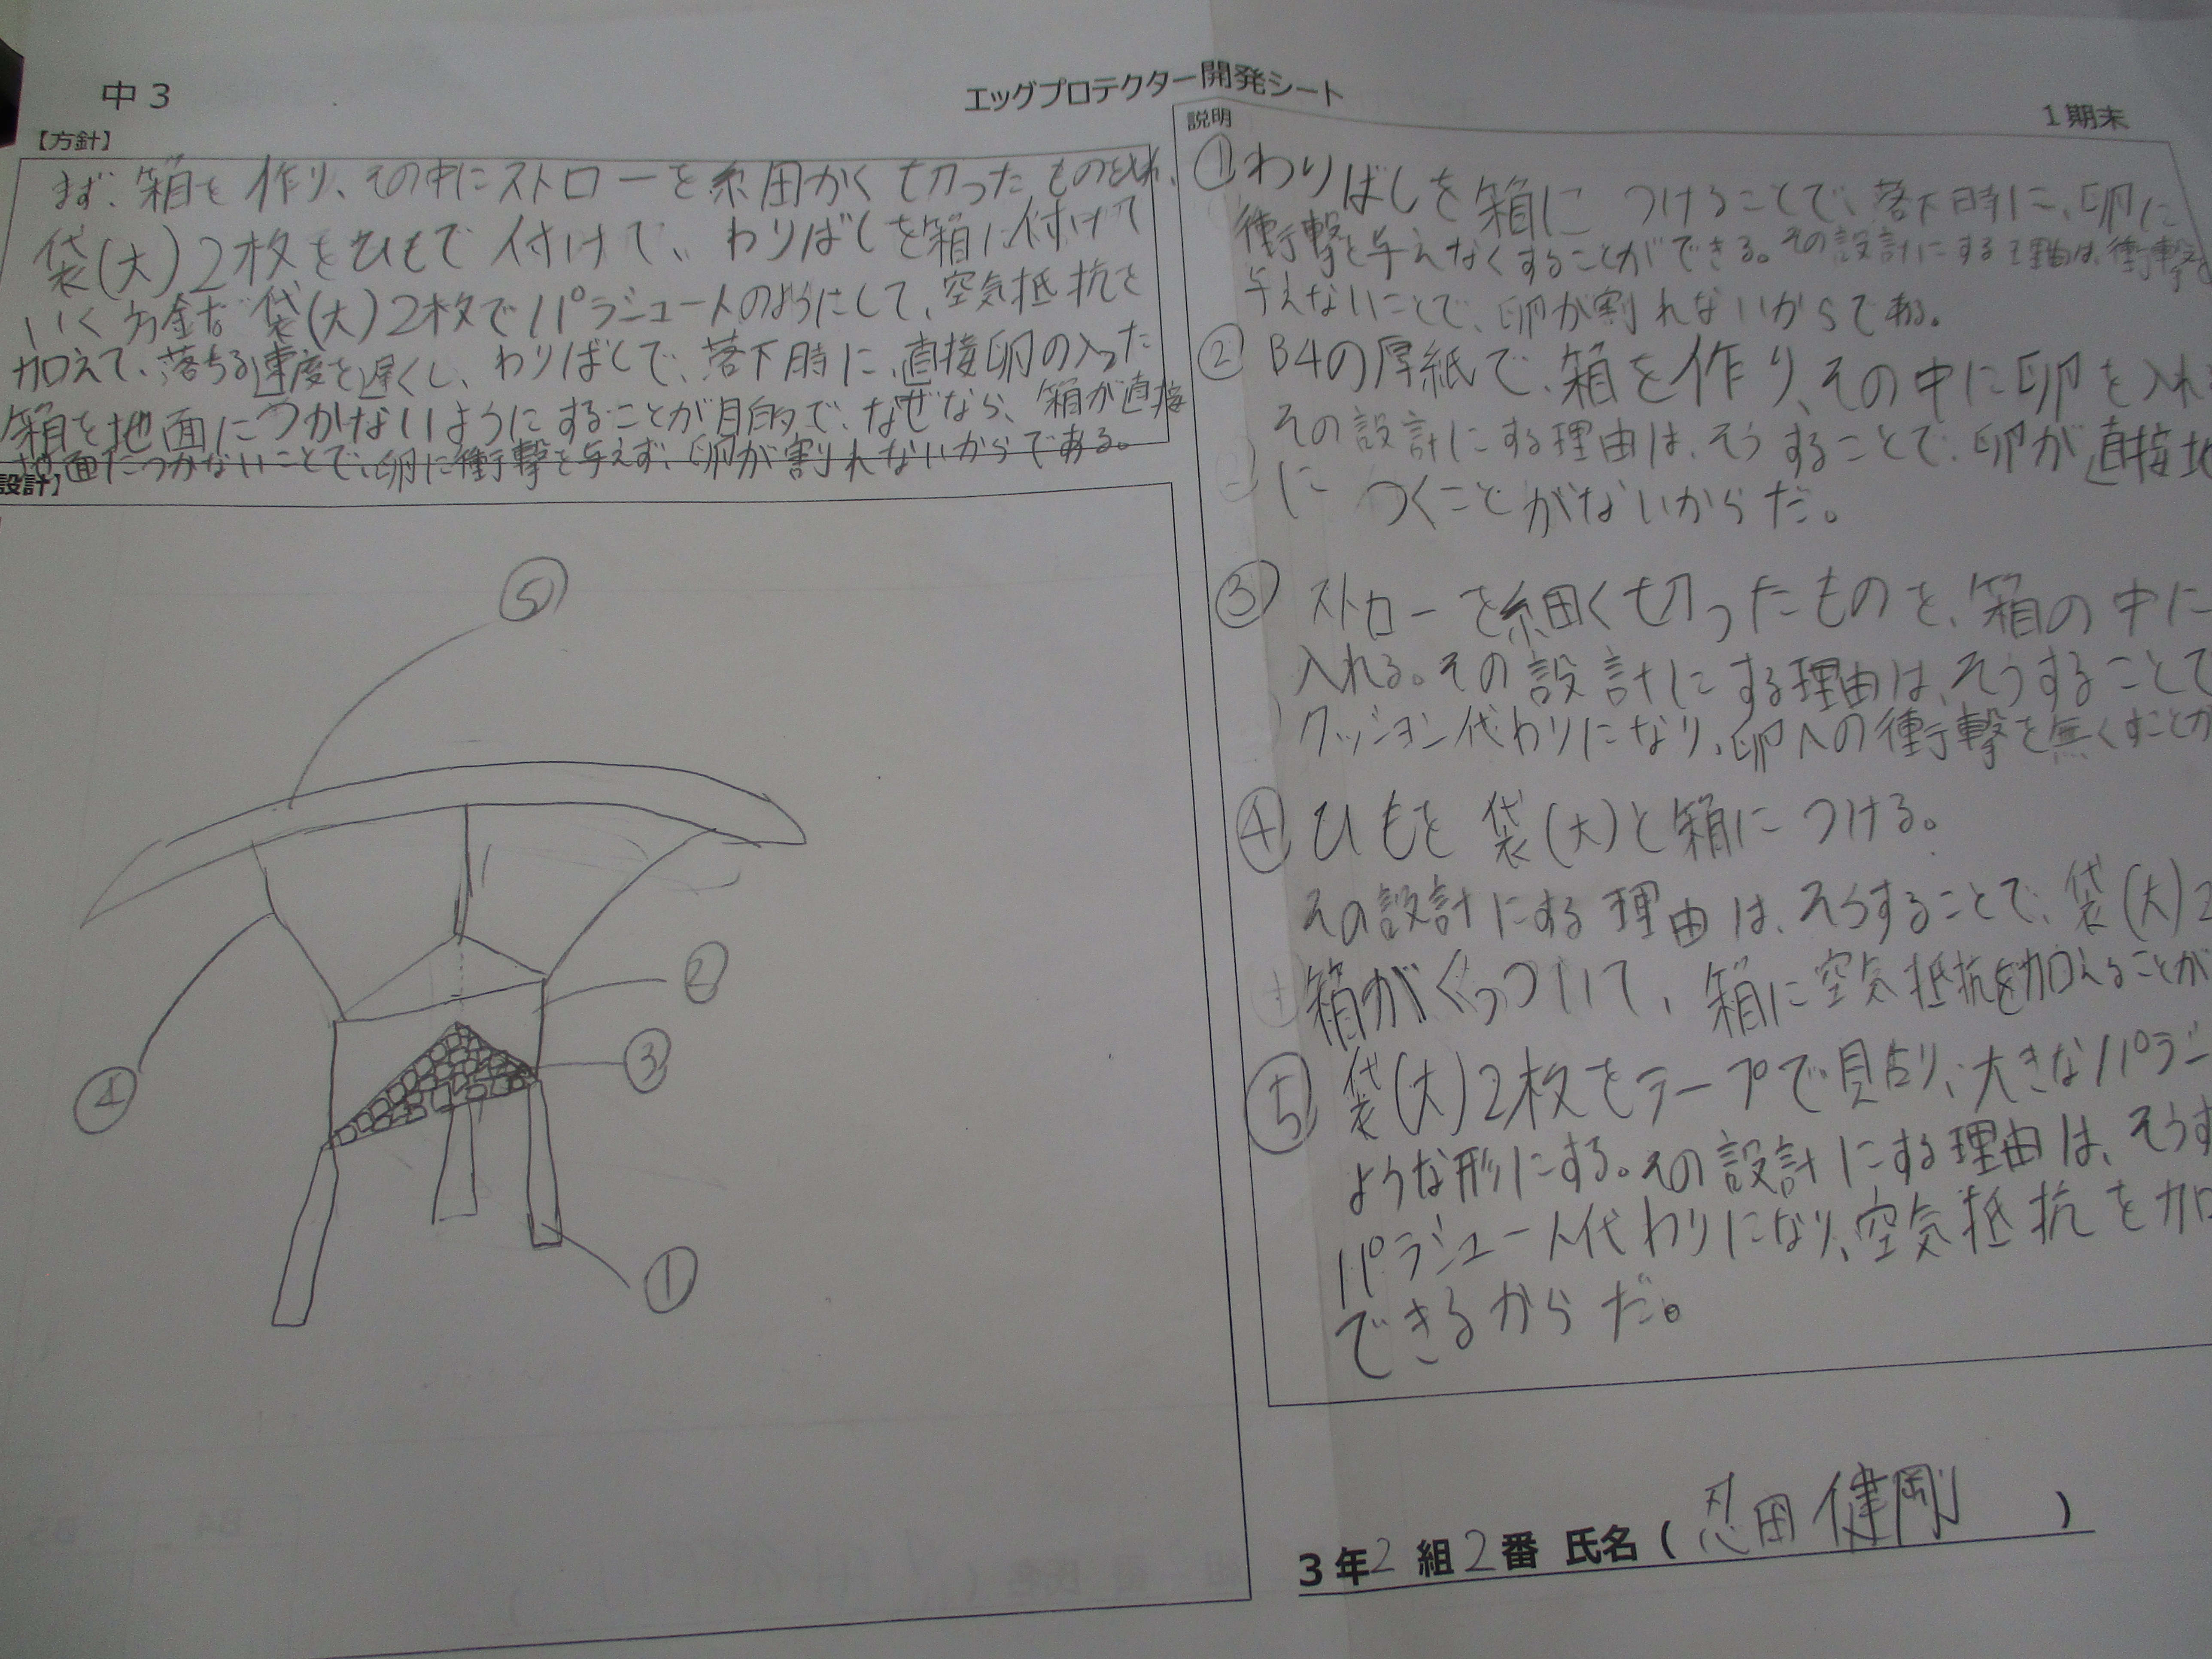 中3
エッグプロテクター開発シート
1期末
【方針】
まず、箱を作り、その中にストローを細かく切ったものを入れ、
袋(大)2枚をひもで付けて、わりばしを箱に付けて
いく方針だ。袋(大)2枚でパラシュートのようにして、空気抵抗を
加えて、落ちる速度を遅くし、わりばしで、落下時に、直接卵の入った
箱を地面につかないようにすることが目的で、なぜなら、箱が直接
地面につかないことで、卵に衝撃を与えず、卵が割れないからである。
設計】
⑤
②
③
④
①
説明
①わりばしを箱に つけることで、落下時に、卵に
衝撃を与えなくすることができる。その設計にする理由は、衝撃を
与えないことで、卵が割れないからである。
②B4の厚紙で、箱を作り、その中に卵を入れ
その設計にする理由は、そうすることで、卵が直接地
に つくことがないからだ。
③ストローを細く切ったものを、箱の中に
入れる。その設計にする理由は、そうすることで
クッション代わりになり、卵への衝撃を無くすことが
④ひもを袋(大)と箱につける。
その設計にする理由は、そうすることで、袋(大)2
箱がくっついて、箱に空気抵抗を加えることが
⑤袋(大)2枚をテープで貼り、大きなパラシ
ような形にする。その設計にする理由は、そうす
パラシュート代わりになり、空気抵抗を加
できるからだ。
3年2組2番 氏名(忍田健剛)